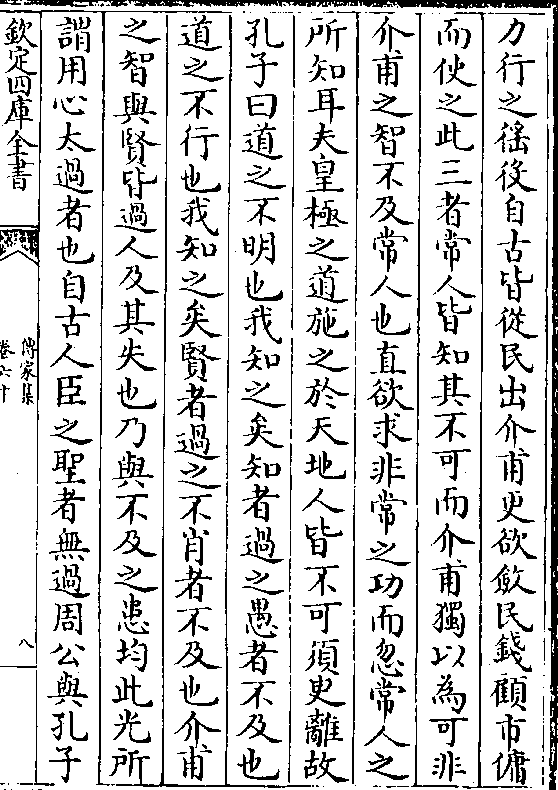 力行之徭役自古皆從民出介甫更欲斂民錢顧市傭
而使之此三者常人皆知其不可而介甫獨以為可非
介甫之智不及常人也直欲求非常之功而忽常人之
所知耳夫皇極之道施之於天地人皆不可須臾離故
孔子曰道之不明也我知之矣知者過之愚者不及也
道之不行也我知之矣賢者過之不肖者不及也介甫
之智與賢皆過人及其失也乃與不及之患均此光所
謂用心太過者也自古人臣之聖者無過周公與孔子
欽定四庫全書
傳家集
卷六十
八